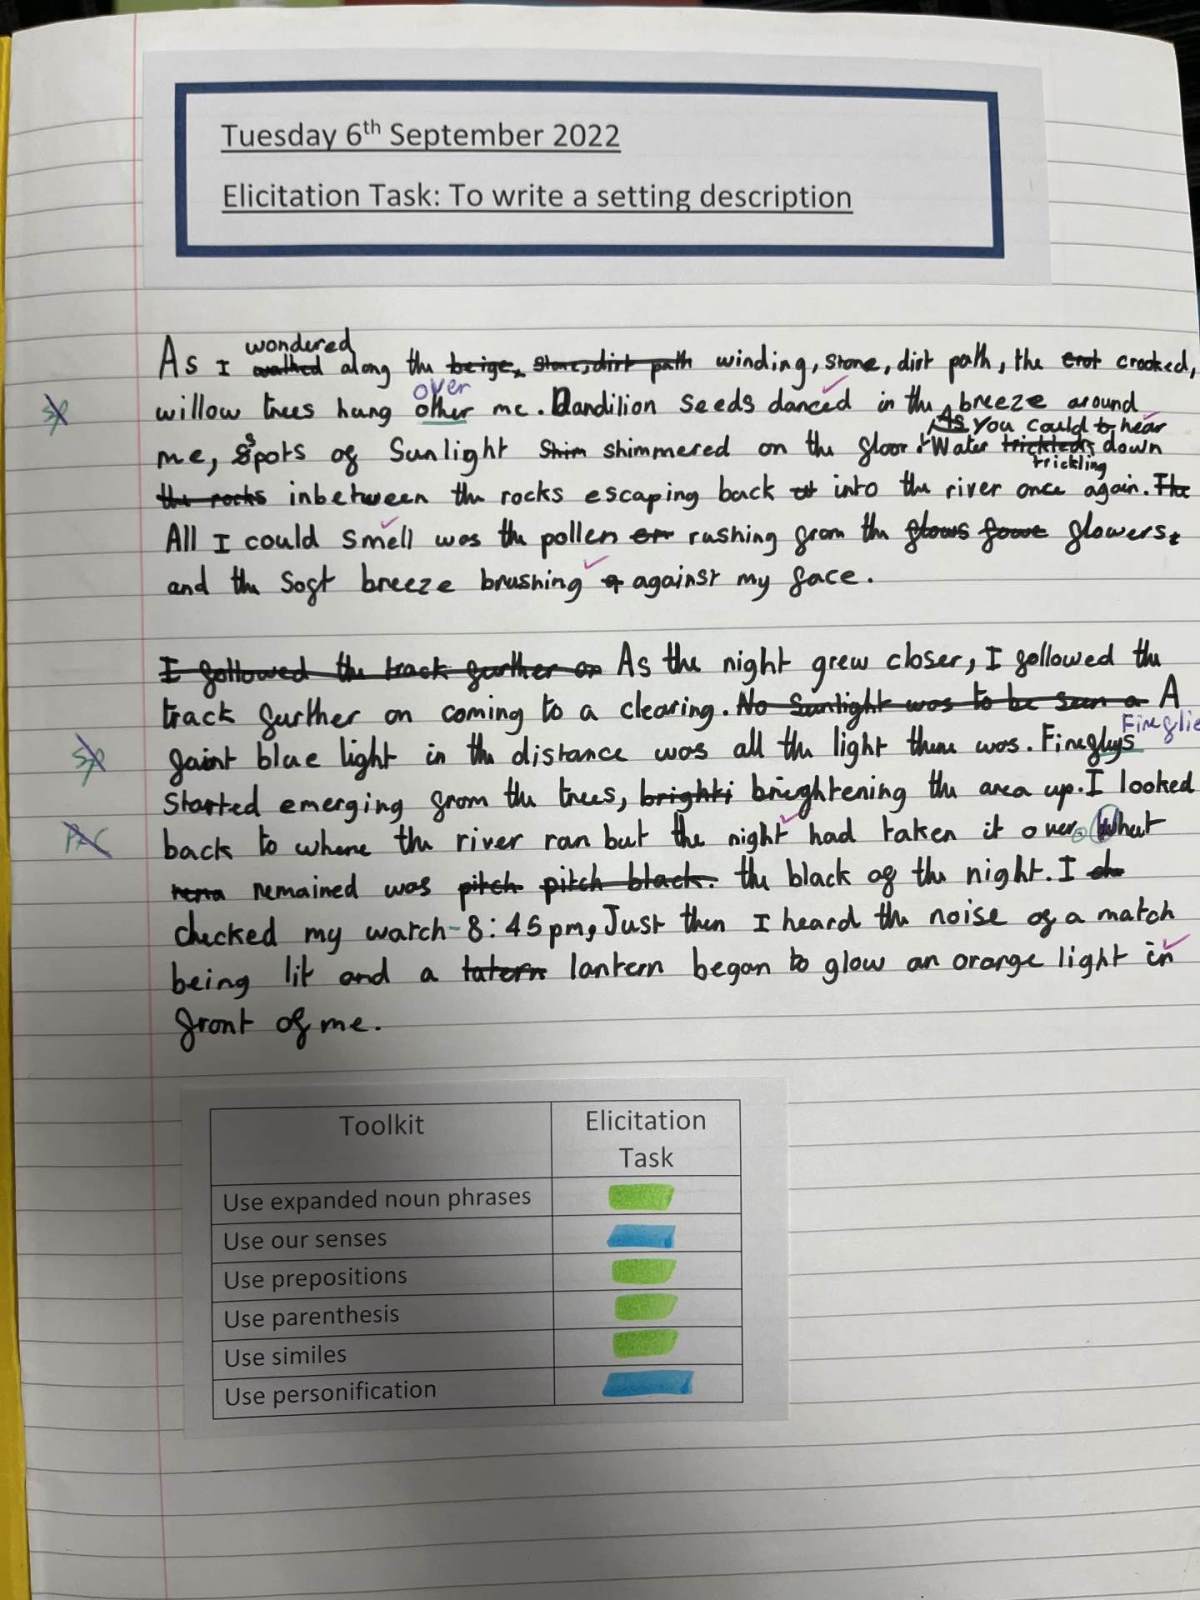 Tuesday 6th September 2022
Elicitation Task: To write a setting description
wondered
As I walked along the beige, stone, dirt path winding, stone, dirt path, the crot crooked,
over
sp willow trees hang other me. Dandilion seeds danced in the breeze around
As you could hear
me, spots of sunlight shim shimmered on the floor. Water trickled down
trickling
the rocks inbetween the rocks escaping back into the river once again. The
All I could smell was the pollen rushing from the flowers,
and the soft breeze brushing against my face.
I followed the track further on As the night grew closer, I followed the
track further on coming to a clearing. No sunlight was to be seen a A
Fireflies
sp faint blue light in the distance was all the light there was. Fireflys
started emerging from the trees, brighti brightening the area up. I looked
PAC back to where the river ran but the night had taken it over. What
remained was pitch pitch black. the black of the night. I
checked my watch-8:45pm, Just then I heard the noise of a match
being lit and a latern lantern began to glow an orange light in
front of me.
Toolkit Elicitation
Task
Use expanded noun phrases
Use our senses
Use prepositions
Use parenthesis
Use similes
Use personification